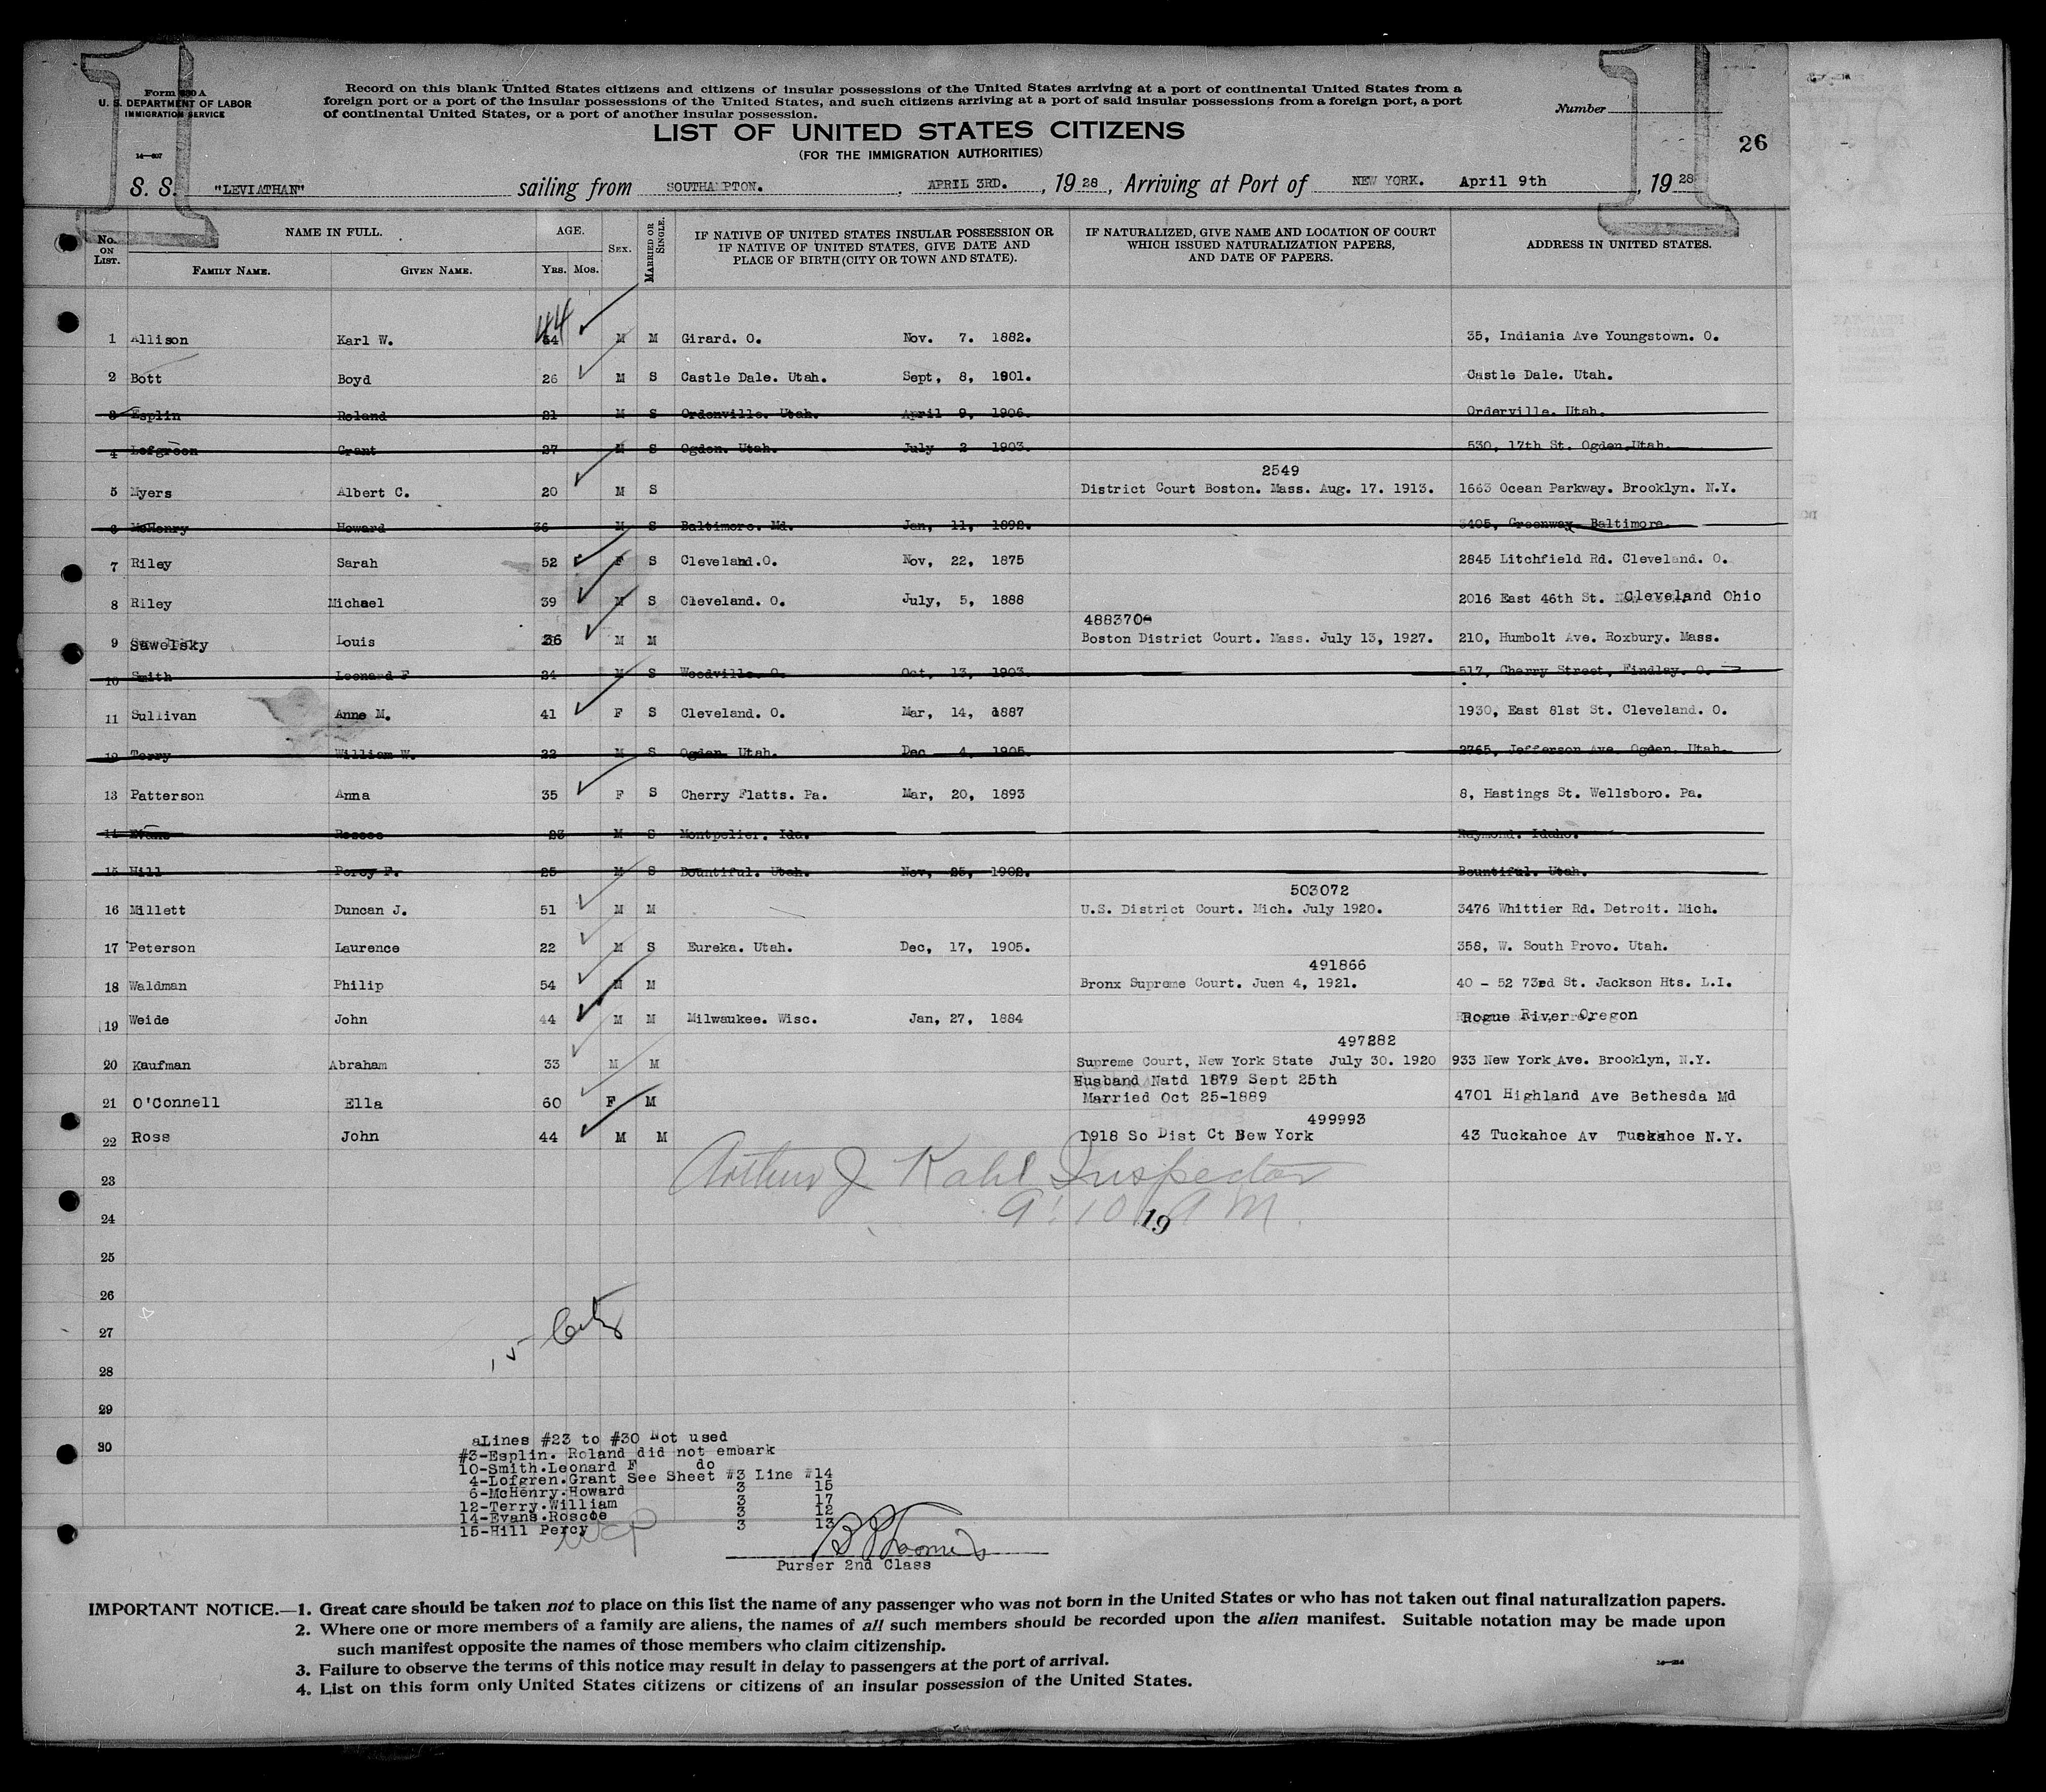 1 1
Form 630 A
U. S. DEPARTMENT OF LABOR
IMMIGRATION SERVICE
Record on this blank United States citizens and citizens of insular possessions of the United States arriving at a port of continental United States from a
foreign port or a port of the insular possessions of the United States, and such citizens arriving at a port of said insular possessions from a foreign port, a port
of continental United States, or a port of another insular possession.
Number
LIST OF UNITED STATES CITIZENS
(FOR THE IMMIGRATION AUTHORITIES)
26
S. S. "LEVIATHAN" sailing from SOUTHAMPTON. , APRIL 3RD. , 19 28 , Arriving at Port of NEW YORK. April 9th , 19 28
No. ON LIST. NAME IN FULL. AGE. SEX. MARRIED OR SINGLE. IF NATIVE OF UNITED STATES INSULAR POSSESSION OR IF NATIVE OF UNITED STATES, GIVE DATE AND PLACE OF BIRTH (CITY OR TOWN AND STATE). IF NATURALIZED, GIVE NAME AND LOCATION OF COURT WHICH ISSUED NATURALIZATION PAPERS, AND DATE OF PAPERS. ADDRESS IN UNITED STATES.
FAMILY NAME. GIVEN NAME. YRS. MOS.
44
1 Allison Karl W. M M Girard. O. Nov. 7. 1882. 35, Indiania Ave Youngstown. O.
2 Bott Boyd 26 M S Castle Dale. Utah. Sept, 8, 1901. Castle Dale. Utah.
3 Esplin Roland 21 M S Ordenville. Utah. April 9, 1906. Orderville. Utah.
4 Lofgreen Grant 27 M S Ogden. Utah. July 2 1903. 530, 17th St. Ogden, Utah.
2549
5 Myers Albert C. 20 M S District Court Boston. Mass. Aug. 17. 1913. 1663 Ocean Parkway. Brooklyn. N.Y.
6 McHenry Howard 36 M S Baltimore. Md. Jan, 11, 1892. 3405, Greenway Baltimore.
7 Riley Sarah 52 F S Cleveland.O. Nov, 22, 1875 2845 Litchfield Rd. Cleveland. O.
8 Riley Michael 39 M S Cleveland. O. July, 5, 1888 2016 East 46th St. Cleveland Ohio
488370
9 Sawelsky Louis 36 M M Boston District Court. Mass. July 13, 1927. 210, Humbolt Ave. Roxbury. Mass.
10 Smith Leonard F 24 M S Woodville. O. Oct, 13, 1903. 517, Cherry Street, Findlay. O.
11 Sullivan Anne M. 41 F S Cleveland. O. Mar, 14, 1887 1930, East 81st St. Cleveland. O.
12 Terry William W. 22 M S Ogden Utah. Dec 4, 1905. 2765, Jefferson Ave. Ogden. Utah.
13 Patterson Anna 35 F S Cherry Flatts. Pa. Mar, 20, 1893 8, Hastings St. Wellsboro. Pa.
14 Evans Roscoe 23 M S Montpelier. Ida. Raymond. Idaho.
15 Hill Percy F. 25 M S Bountiful. Utah. Nov, 25, 1902. Bountiful. Utah.
503072
16 Millett Duncan J. 51 M M U.S. District Court. Mich. July 1920. 3476 Whittier Rd. Detroit. Mich.
17 Peterson Laurence 22 M S Eureka. Utah. Dec, 17, 1905. 358, W. South Provo. Utah.
491866
18 Waldman Philip 54 M M Bronx Supreme Court. Juen 4, 1921. 40 - 52 73rd St. Jackson Hts. L.I.
19 Weide John 44 M M Milwaukee. Wisc. Jan, 27, 1884 Rogue River Oregon
497282
20 Kaufman Abraham 33 M M Supreme Court, New York State July 30. 1920 933 New York Ave. Brooklyn, N.Y.
Husband Natd 1879 Sept 25th
21 O'Connell Ella 60 F M Married Oct 25-1889 4701 Highland Ave Bethesda Md
499993
22 Ross John 44 M M 1918 So Dist Ct New York 43 Tuckahoe Av Tuckahoe N.Y.
23 Arthur J Kahl Inspector
24 9:10 AM
19
25
26
27 City
28
29
30
aLines #23 to #30 Not used
#3-Esplin. Roland did not embark
10-Smith.Leonard F do
4-Lofgren.Grant See Sheet #3 Line #14
6-McHenry.Howard 3 15
12-Terry.William 3 17
14-Evans.Roscoe 3 12
15-Hill Percy 3 13
Purser 2nd Class
IMPORTANT NOTICE.—1. Great care should be taken not to place on this list the name of any passenger who was not born in the United States or who has not taken out final naturalization papers.
2. Where one or more members of a family are aliens, the names of all such members should be recorded upon the alien manifest. Suitable notation may be made upon
such manifest opposite the names of those members who claim citizenship.
3. Failure to observe the terms of this notice may result in delay to passengers at the port of arrival.
4. List on this form only United States citizens or citizens of an insular possession of the United States.